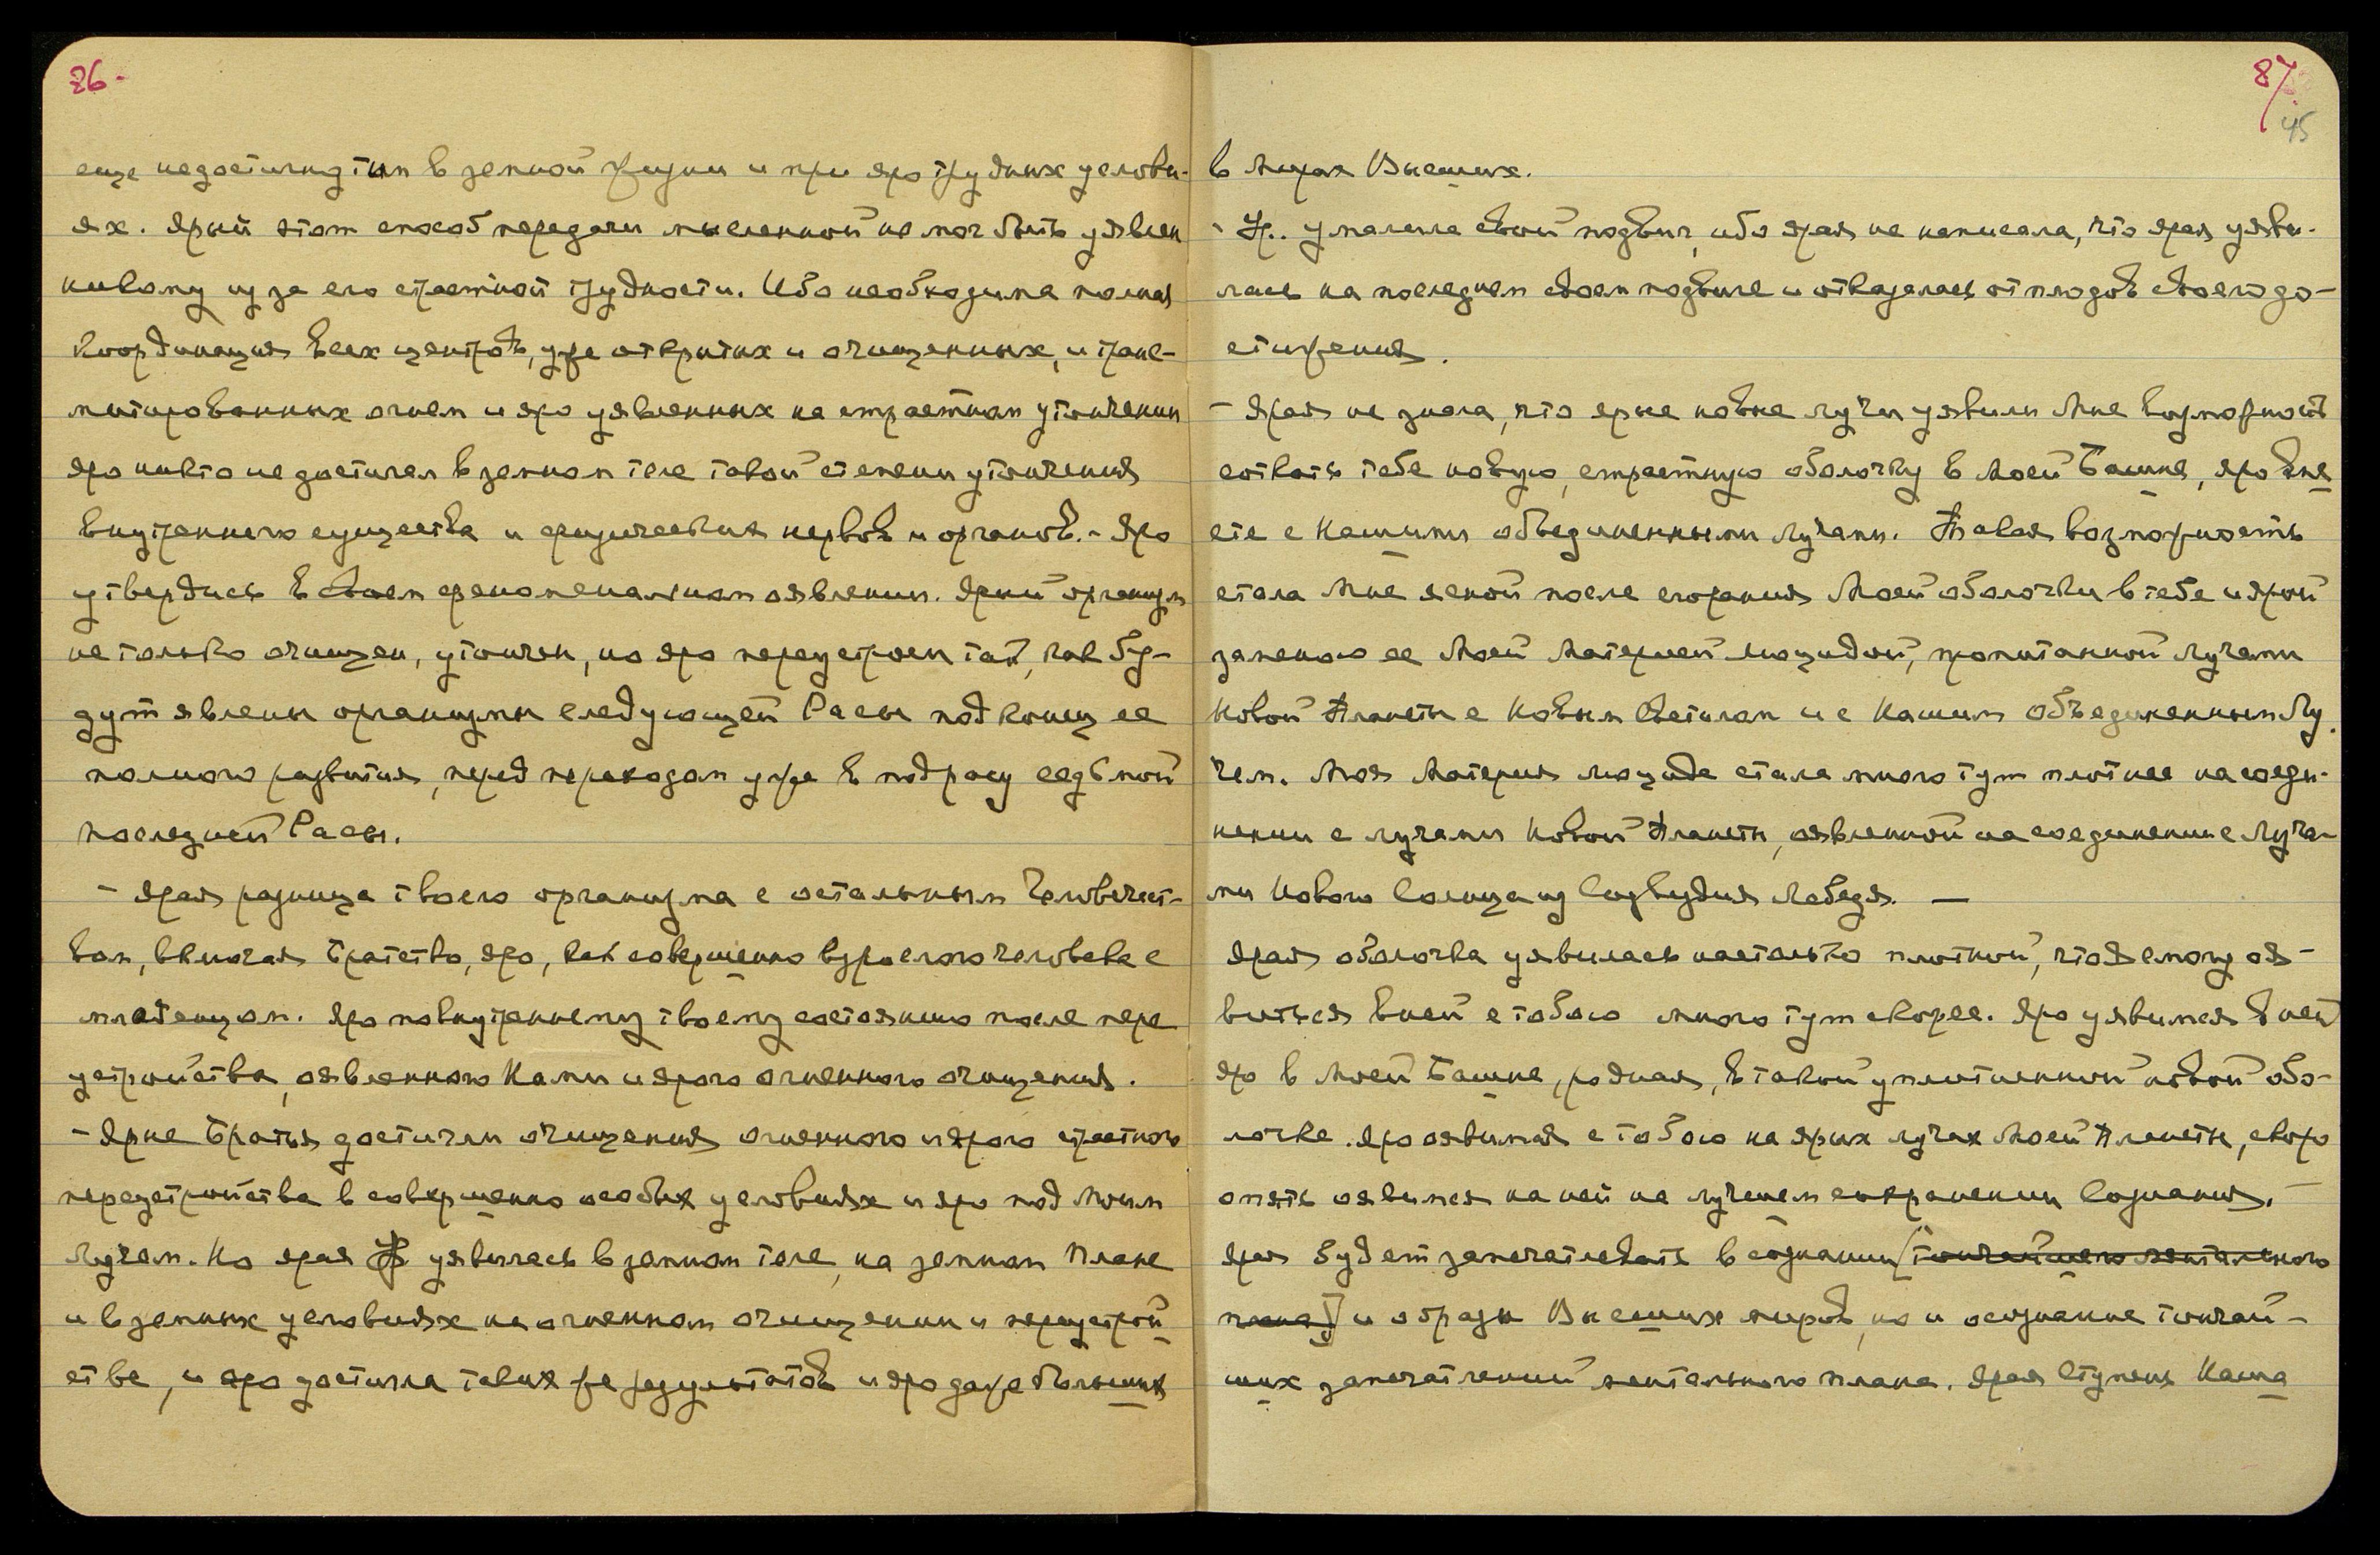 86.
еще недостигнутым в земной жизни и при яро трудных услови-
ях. Ярый этот способ передачи мысленной не мог быть уявлен
никому из за его страстной трудности. Ибо необходима полная
координация всех центров, уже открытых и очищенных, и транс-
мутированных огнем и яро уявленных на страстном утончении
Яро никто не достигал в земном теле такой степени утончения
внутреннего существа и физических нервов и органов. - Яро
утвердись в своем феноменальном оявлении. Ярый организм
не только очищен, утончен, но яро переустроен так, как бу-
дут явлены организмы следующей Расы под конец ее
полного развития, перед переходом уже в подрасу седьмой
последней Расы.
- Ярая разница твоего организма с остальным Человечест-
вом, включая Братство, яро, как совершенно взрослого человека с
младенцом. Яро по внутреннему твоему состоянию после пере
устройства, оявленного Нами и ярого огненного очищения.
- Ярые Братья достигли очищения огненного и ярого страстного
переустройства в совершенно особых условиях и яро под Моим
Лучем. Но ярая Ур уявилась в земном теле, на земном Плане
и в земных условиях на огненном очищении и переустрой
стве, и яро достигла таких же результатов и яро даже больших
87.
45
в Мирах Высших.
- Ур. умалила свой подвиг, ибо ярая не написала, что ярая уяви-
лась на последнем своем подвиге и отказалась от плодов своего до-
стижения.
- Ярая не знала, что ярые новые лучи уявили Мне возможность
соткать тебе новую, страстную оболочку в Моей Башне, яро вме
сте с Нашими объединенными Лучами. Такая возможность
стала Мне ясной после сгорания Моей оболочки в тебе и ярой
заменою ее Моей Материей Люцидой, пропитанной Лучами
Новой Планеты с Новым Светилом и с Нашим объединенным Лу
чем. Моя Материя люцида стала много тут плотнее на соеди-
нении с лучами Новой Планеты, оявленной на соединении с Луча-
ми Нового Солнца из Созвездия Лебедя. —
Ярая оболочка уявилась настолько плотной, что Я смогу оя-
виться в ней с тобою много тут скорее. Яро уявимся в ней
яро в Моей Башне, родная, в такой уплотненной новой обо-
лочке. Яро оявимся с тобою на ярых лучах Моей Планеты, скоро
опять оявимся на ней на лучшем сохранении Сознания. -
Ярая будет запечатлевать в сознании [тончайшего ментального
плана] и образы Высших миров, но и осознание тончай-
ших запечатлений ментального плана. Ярая Ступень Наша